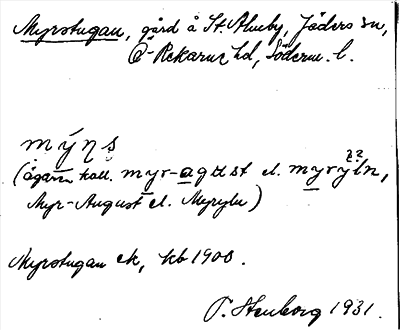 Myrstugan, gård å St. Åmby, Jäders sn,
Ö-Rekarne hd, Söderm. l.
mýn̥s̥
(ägaren kall. myr-agust el. myrýln,
Myr-August el. Myryln)
Myrstugan ek, kb 1900.
P. Stenborg 1931.